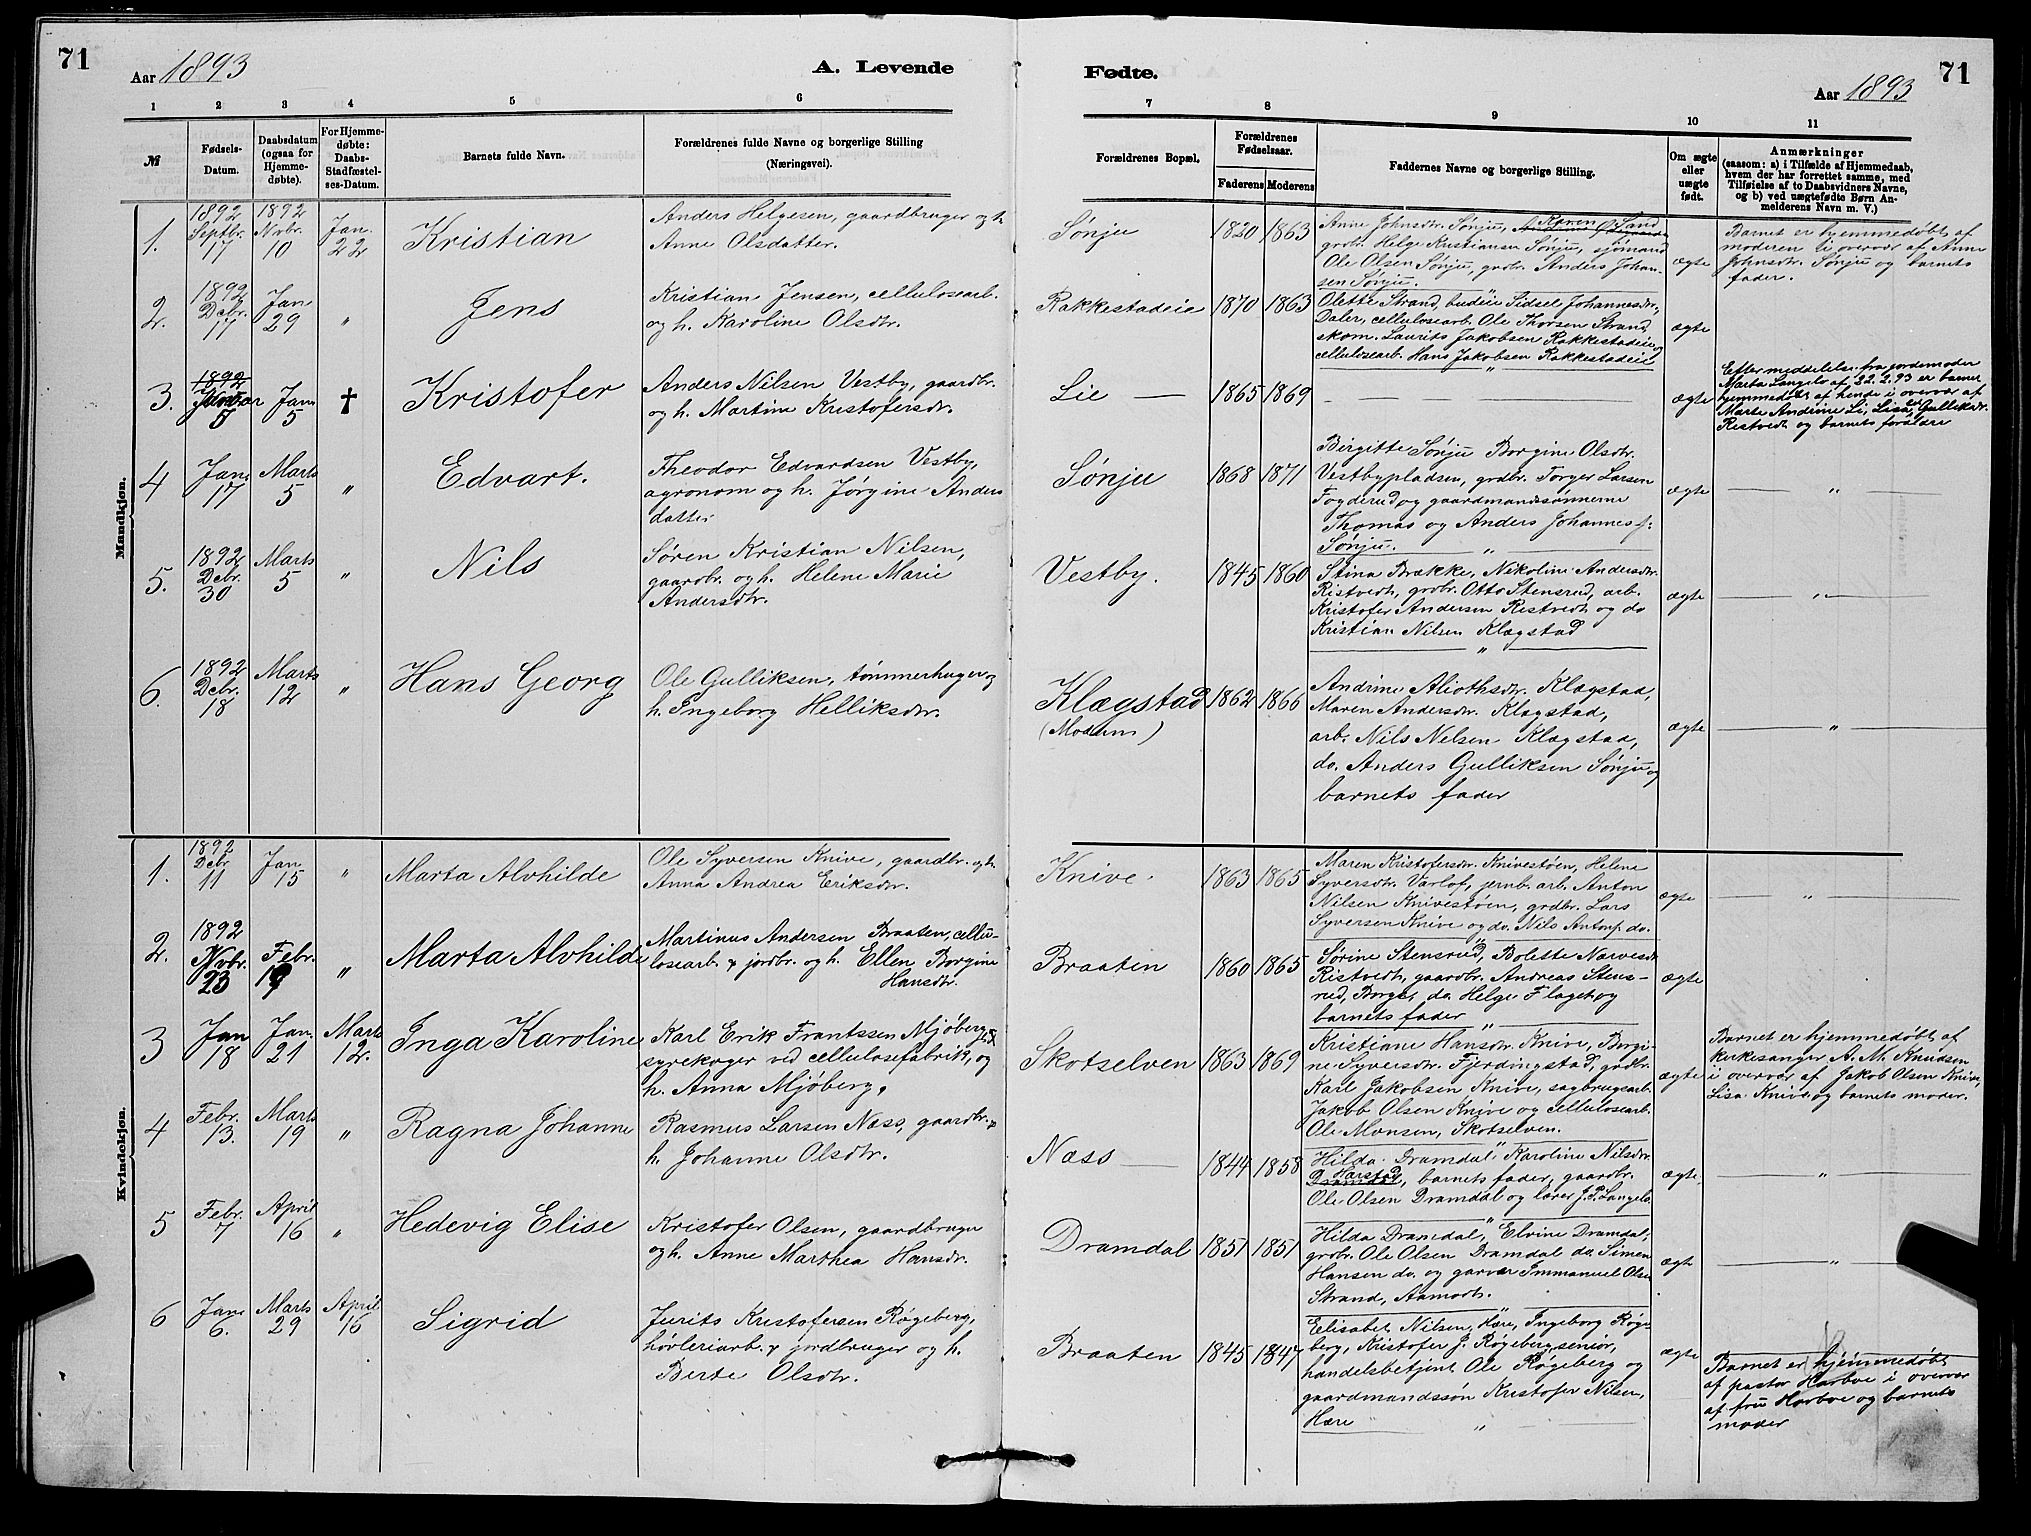 71
Aar 1893
A. Levende
1 2 3 4 5 6
№
Fødsels-Datum.
Daabsdatum (ogsaa for Hjemmedøbte).
For Hjemmedøbte: Daabs-Stadfæstelses-Datum.
Barnets fulde Navn.
Forældrenes fulde Navne og borgerlige Stilling
(Næringsvei).
Mandkjøn.
1. 1892 Septbr. 17 1892 Novbr. 10 Jan. 22 Kristian
Anders Helgesen, gaardbruger og h.
Anne Olsdatter.
2. 1892 Debr. 17 Jan 29 " Jens
Kristian Jensen, cellulosearb.
og h. Karoline Olsdtr.
3. 1892 Januar 5 Jan. 5 † Kristofer
Anders Nilsen Vestby, gaardbr.
og h. Martine Kristofersdtr.
4 Jan. 17 Marts 5 " Edvart.
Theodor Edvardsen Vestby,
agronom og h. Jørgine Anders
datter
5. 1892 Debr. 30 Marts 5 " Nils
Søren Kristian Nilsen,
gaardbr. og h. Helene Marie
Andersdtr.
6. 1892 Debr. 18 Marts 12 " Hans Georg
Ole Gulliksen, tømmerhuger og
h. Ingeborg Helliksdtr.
Kvindekjøn.
1. 1892 Debr 11 Jan. 15 " Marta Alvhilde
Ole Syversen Knive, gaardbr. og h.
Anna Andrea Eriksdtr.
2. 1892 Novbr. 23 Febr. 19 " Marta Alvhilde
Martinus Andersen Braaten, cellu-
losearb. & jordbr. og h. Ellen Borgine
Hansdtr.
3 Jan 18 Jan. 21 Marts 12. Inga Karoline
Karl Erik Frantssen Mjøberg
syrekoger ved cellulosefabrik, og
h. Anna Mjøberg.
4 Febr. 13. Marts 19 " Ragna Johanne
Rasmus Larsen Næss, gaardbr. &
h. Johanne Olsdtr.
5 Febr. 7 April 16 " Hedevig Elise
Kristofer Olsen, gaardbruger
og h. Anne Marthea Hansdtr.
6 Jan. 6. Marts 29 April 16 Sigrid
Jurits Kristofersen Røgeberg,
høvleriarb. & jordbruger og h.
Berte Olsdtr.
Fødte.
71
Aar 1893
7 8 9 10 11
Forældrenes Bopæl.
Forældrenes Fødselsaar.
Faderens Moderens
Faddernes Navne og borgerlige Stilling.
Om ægte eller uægte født.
Anmærkninger
(saasom: a) i Tilfælde af Hjemmedaab,
hvem der har forrettet samme, med
Tilføielse af to Daabsvidners Navne,
og b) ved uægtefødte Børn An-
melderens Navn m. V.)
Sønju 1820 1863
Anne Johnsdtr. Sønju, Karen Sand
grdbr. Helge Kristiansen Sønju, sjømand
Ole Olsen Sønju, grdbr. Anders Johan-
sen Sønju.
ægte
Barnet er hjemmedøbt af
moderen i overvær af Anne
Johnsdtr. Sønju og barnets
fader.
Rakkestadeie 1870 1863
Olette Strand, budeie Sidsel Johannesdr.
Daler, cellulosearb. Ole Thorsen Strand,
skom. Laurits Jakobsen Rakkestadeie og
cellulosearb. Hans Jakobsen Rakkestadeie
ægte
Lie — 1865 1869
ægte
Efter meddelelse fra jordemoder
Marta Langelo af 22.2.93 er barnet
hjemmedøbt af hende i overvær af
Marte Andrine Li, Lisa Gulliksdr.
Ristvedt og barnets forældre
Sønju 1868 1871
Birgitte Sønju Borgine Olsdtr.
Vestbypladsen, grdbr. Torger Larsen
Fogderud og gaardmandssønnerne
Thomas og Anders Johannes f:
Sønju.
ægte "
Vestby. 1845 1860
Stina Brække, Nikoline Andersdtr.
Ristvedt, grdbr. Otto Stensrud, arb.
Kristofer Andersen Ristvedt og do
Kristian Nilsen Klægstad
ægte "
Klægstad (Moderns) 1862 1866
Andrine Aliothsdtr. Klægstad,
Maren Andersdtr. Klægstad,
arb. Nils Nelsen Klægstad,
do. Anders Gulliksen Sønju og
barnets fader
ægte "
Knive. 1863 1865
Maren Kristofersdtr. Knivestøen, Helene
Syversdtr. Varlof, jernb. arb. Anton
Nilsen Knivestøen, grdbr. Lars
Syversen Knive og do. Nils Antonf. do.
ægte "
Braaten 1860 1865
Sørine Stensrud, Bolette Narvesdr.
Ristvedt, gaardbr. Andreas Stens-
rud, Borge, do. Helge Flaget og
barnets fader
ægte
Skotselven 1863 1869
Kristiane Hansdtr. Knive, Borgi-
ne Syversdtr. Fjerdingstad, grdbr.
Karl Jakobsen Knive, sagbrugsarb.
Jakob Olsen Knive og cellulosearb.
Ole Monsen, Skotselven.
ægte
Barnet er hjemmedøbt af
kirkesanger A. M. Knudsen
i overvær af Jakob Olsen Knive,
Lisa Knive og barnets moder.
Næss — 1844 1858
Hilda Dramdal, Karoline Nilsdtr.
Harstad, barnets fader, gaardbr.
Ole Olsen Dramdal og lærer J. P. Langelo
ægte. "
Dramdal 1851 1851
Hilda Dramdal, Elvine Dramdal,
grdbr. Ole Olsen Dramdal do. Simen
Hansen do. og garver Immanuel Olsen
Strand, Aamodt.
ægte "
Braaten 1845 1847
Elisabet Nilsen, Hære, Ingeborg Røge-
berg, Kristofer J. Røgeberg senior,
handelsbetjent Ole Røgeberg og
gaardmandssøn Kristofer Nilsen,
Hære
ægte
Barnet er hjemmedøbt
af pastor Harboe i overvær
af fru Harboe og barnets
moder